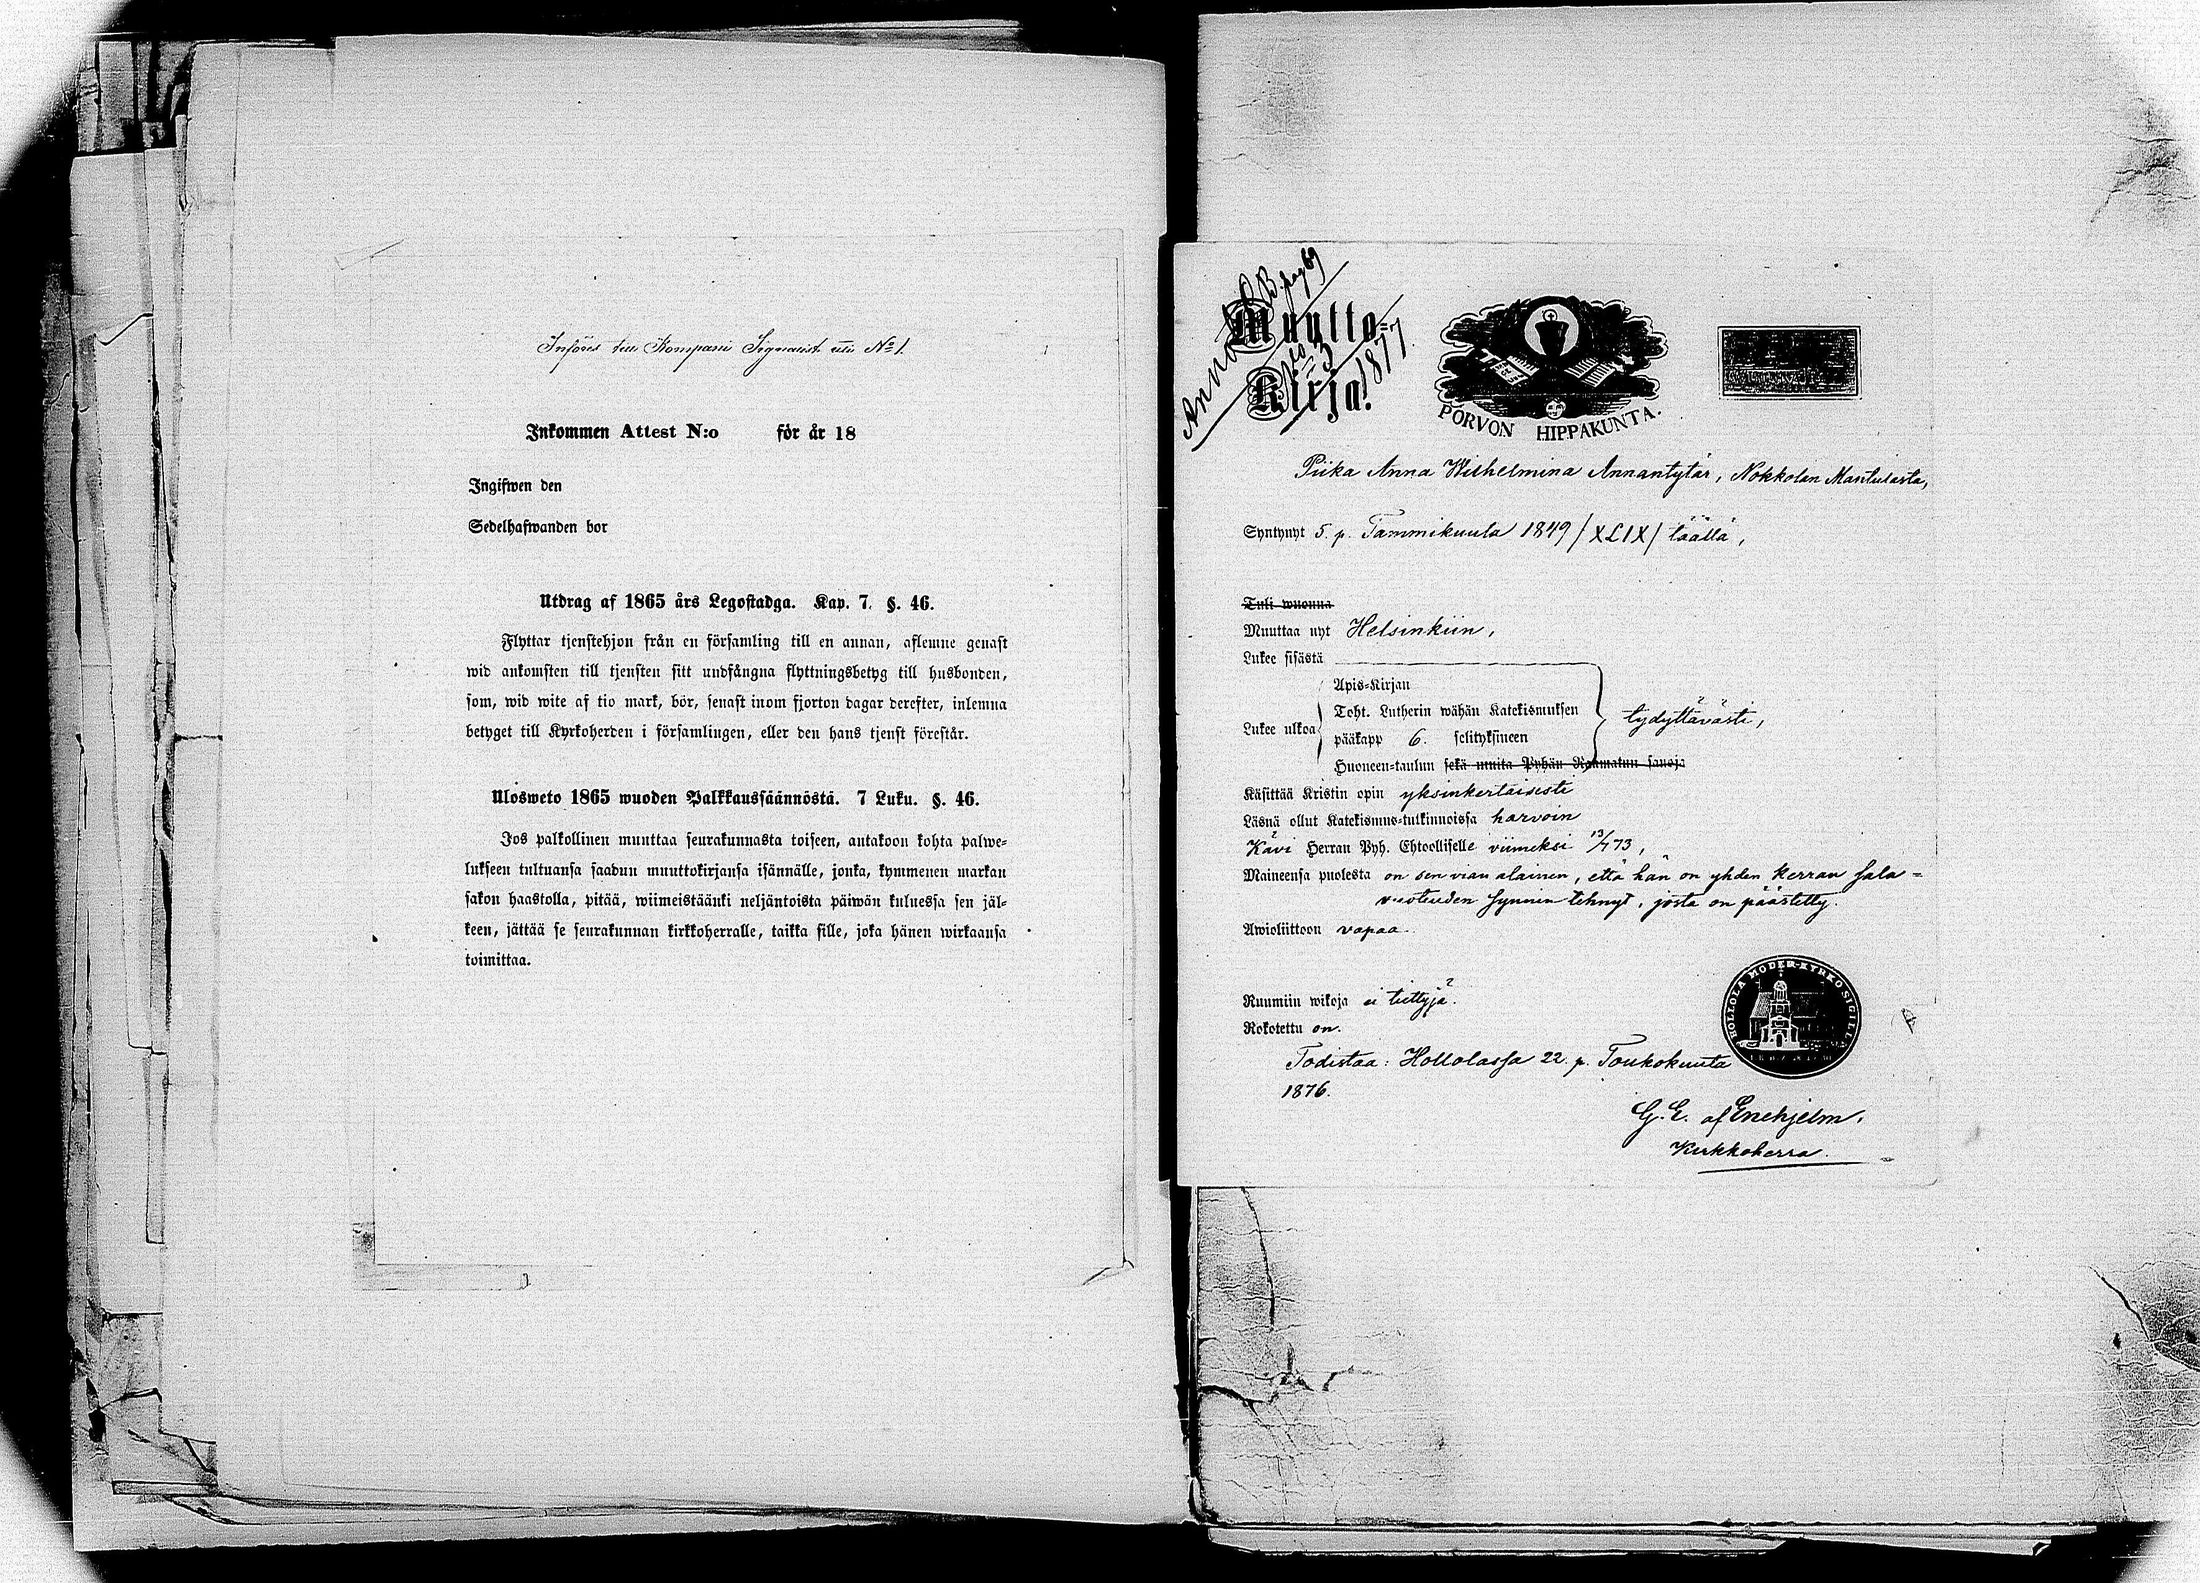 Införes till Kompani Signalist utu No 1.
Inkommen Attest N:o för år 18
Ingifwen den
Sedelhafwanden bor
Utdrag af 1865 års Legostadga. Kap. 7. §. 46.
Flyttar tjenstehjon från en församling till en annan, aflemne genast
wid ankomsten till tjensten sitt undfångna flyttningsbetyg till husbonden,
som, wid wite af tio mark, bör, senast inom fjorton dagar derefter, inlemna
betyget till Kyrkoherden i församlingen, eller den hans tjenst förestår.
Ulosweto 1865 wuoden Palkkaussäännöstä. 7 Luku. §. 46.
Jos palkollinen muuttaa seurakunnasta toiseen, antakoon kohta palwe-
lukseen tultuansa saadun muuttokirjansa isännälle, jonka, kymmenen markan
sakon haastolla, pitää, wiimeistäänki neljäntoista päiwän kuluessa sen jäl-
keen, jättää se seurakunnan kirkkoherralle, taikka sille, joka hänen wirkaansa
toimittaa.
Anna B pag 69
1877
Muutto-
Kirja.
PORVON HIPPAKUNTA.
Piika Anna Wilhelmina Annantytär, Nokkolan Mantulasta,
Syntynyt 5. p. Tammikuuta 1849 /XLIX/ täällä,
Tuli wuonna
Muuttaa nyt Helsinkiin,
Lukee sisästä
Apis-Kirjan
Toht. Lutherin wähän Katekismuksen
Lukee ulkoa pääkapp 6. selityksineen tydyttävästi,
Huoneen-taulun sekä muita Pyhän Raamatun sanoja
Käsittää Kristin opin yksinkertaisesti
Läsnä ollut Katekismus-tutkinnoissa harvoin
Kävi Herran Pyh. Ehtoolliselle viimeksi 13/7 73,
Maineensa puolesta on sen vian alainen, että hän on yhden kerran sala-
vuoteuden synnin tehnyt, josta on päästetty.
Awioliittoon vapaa.
Ruumiin wikoja ei tiettyjä.
Rokotettu on.
HOLLOLA MODER-KYRKO SIGILL
Todistaa: Hollolassa 22. p. Toukokuuta
1876.
G. E. af Enehjelm,
Kirkkoherra.